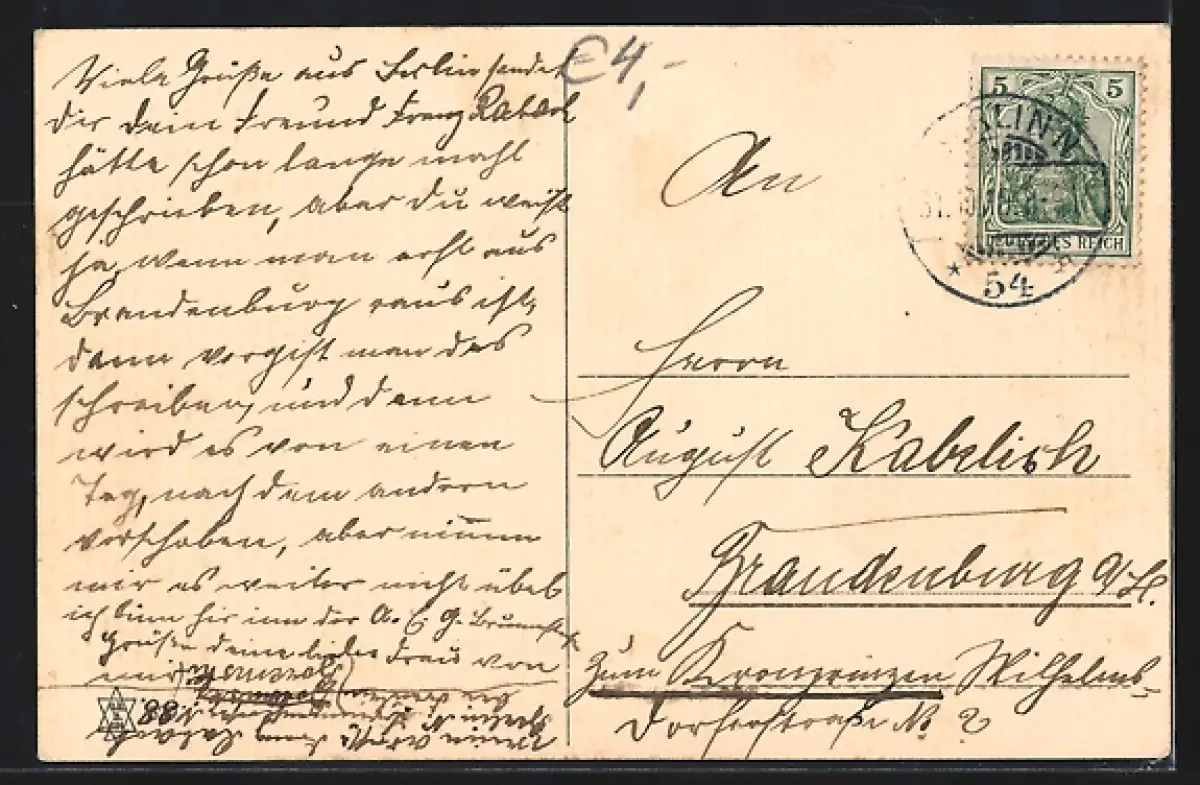 Viele Grüße aus Berlin sendet
dir dein Freund Franz
hätte schon lange mahl
geschrieben, aber du weist
ja, wenn man erst aus
Brandenburg raus ist,
dann vergist man das
schreiben, und dann
wird es von einen
Tag, nach dem andern
verschoben, aber nimm
mir es weiter nicht übel
ich binn hir inn der A. E. G. Brunnenstr
Grüße deine liebe Frau von
mir
88
€4,-
An
Herrn
August Kabelish
Brandenburg a/H.
Zum Kronprinzen Wilhelms-
dorferstraße No 2
5 5
DEUTSCHES REICH
BERLIN N
54